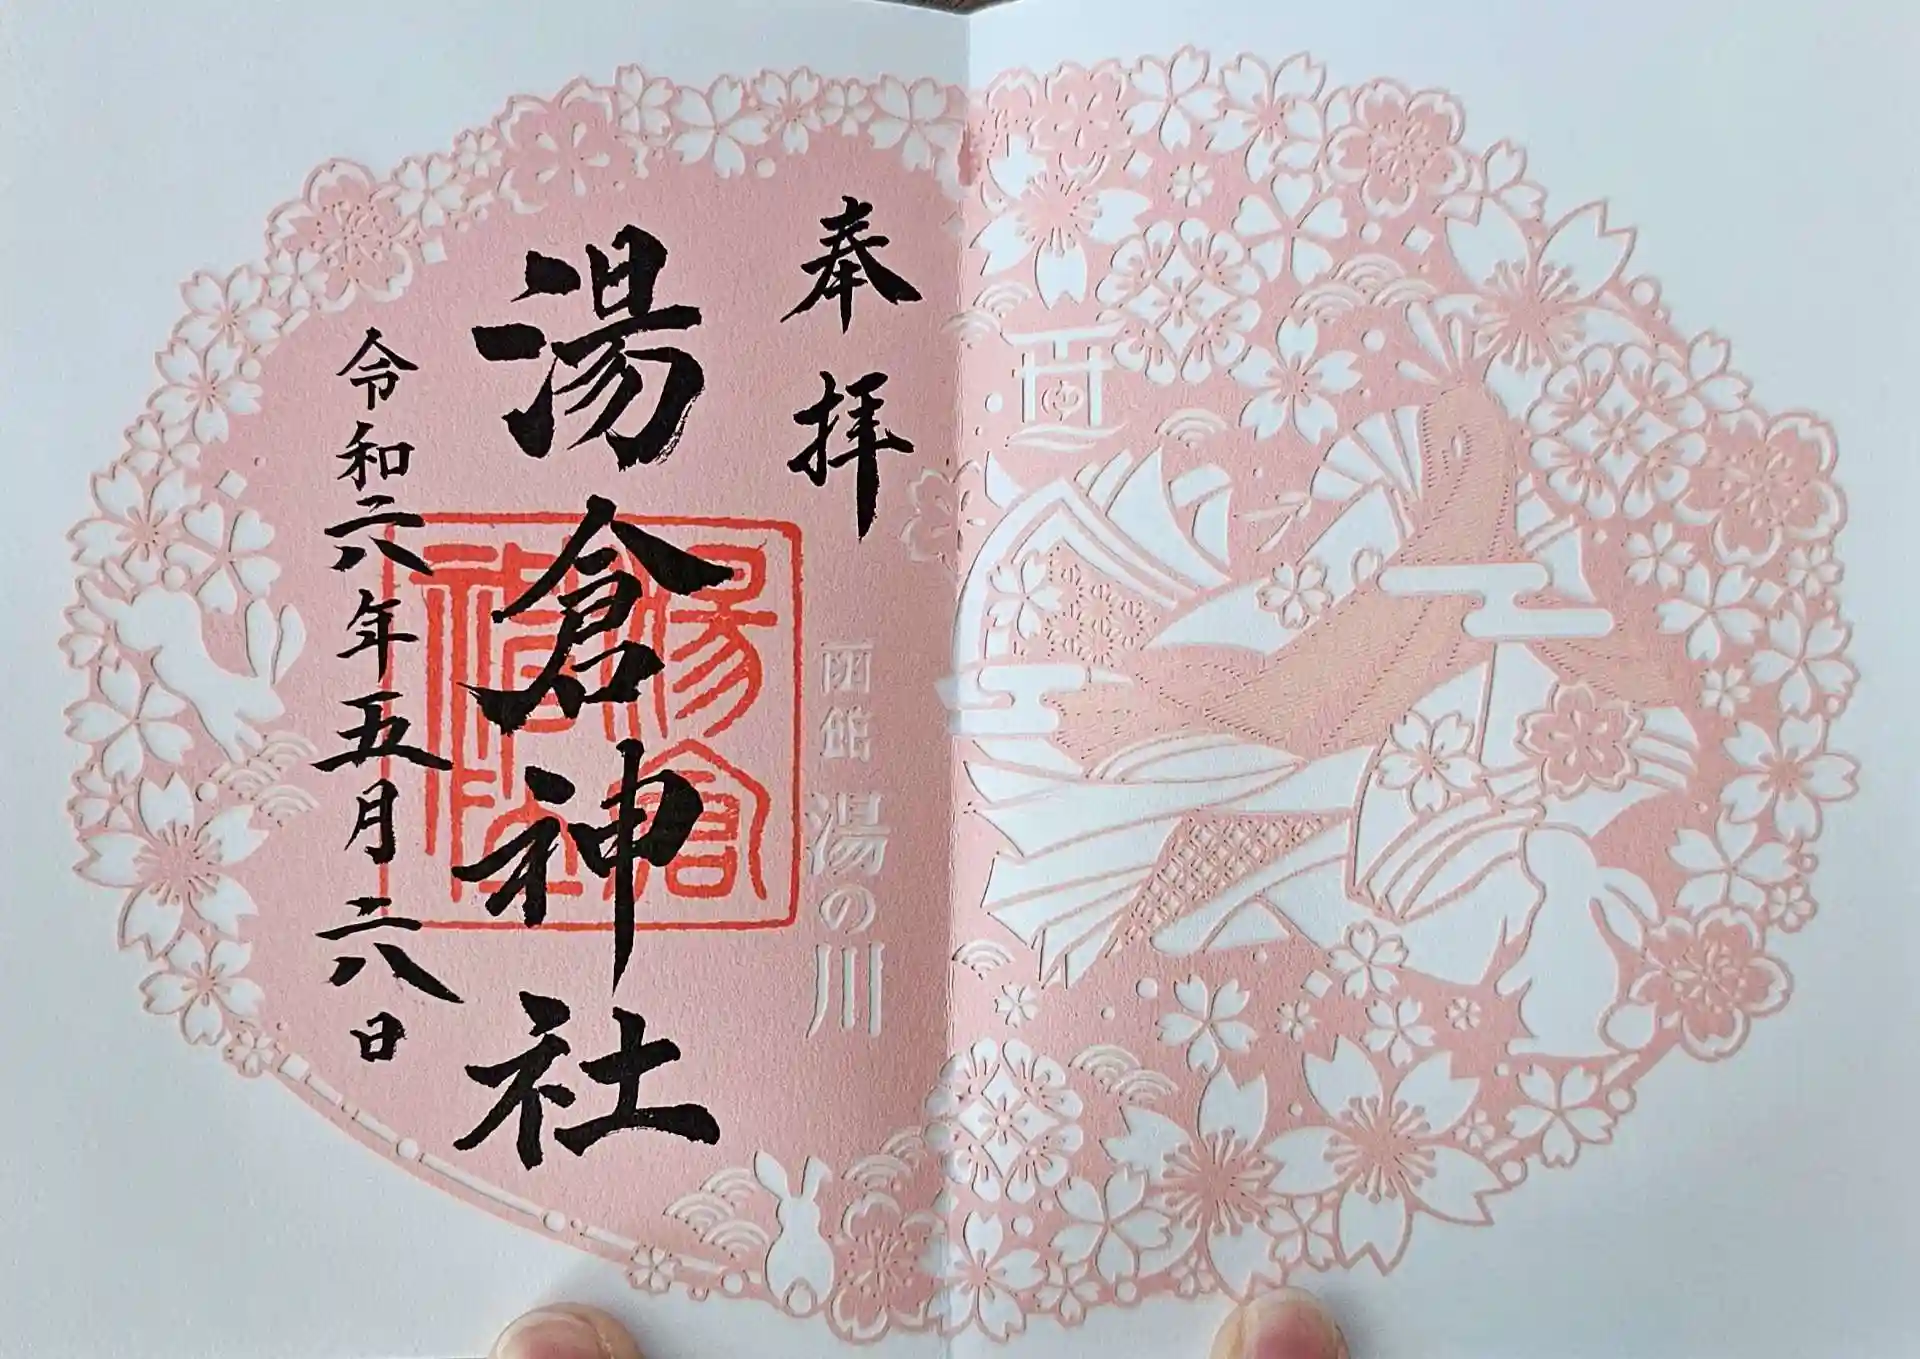 奉拝
函館 湯の川
湯倉神社
湯倉神社
令和六年五月二八日
ゆ